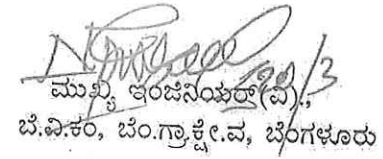 29/3
ಮುಖ್ಯ ಇಂಜಿನಿಯರ್(ವಿ).,
ಬೆ.ವಿ.ಕಂ, ಬೆಂ.ಗ್ರಾ.ಕ್ಷೇ.ವ, ಬೆಂಗಳೂರು